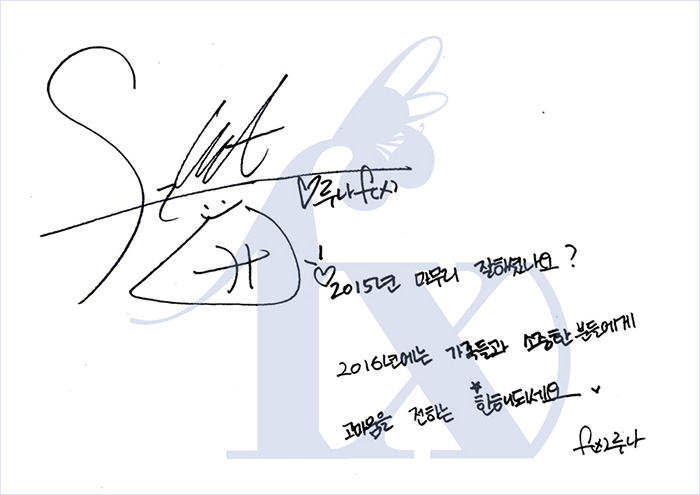 ♡루나 f(x)
♡2015년 마무리 잘하셨나요?
2016년에는 가족들과 소중한분들에게
고마움을 전하는 한해되세요
f(x)루나
fx